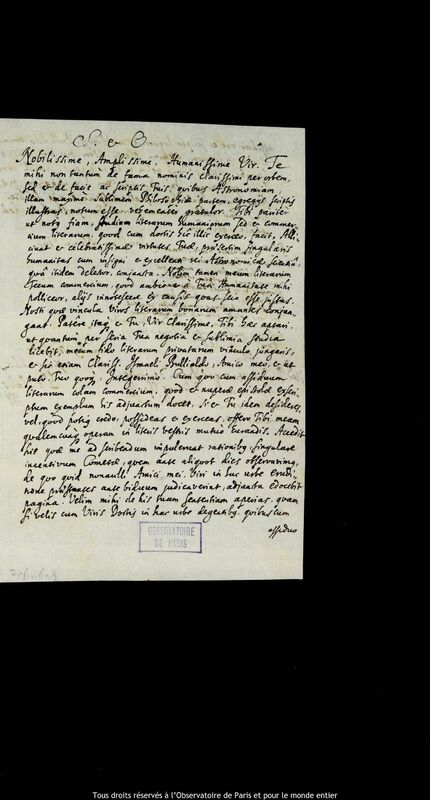 S. & O
Nobilissime, Amplissime, Humanissime Vir. Te
mihi non tantum de fama nominis clarissimi per orbem,
sed & de facie ac scriptis Tuis, quibus Astronomiam,
illam maxime sublimem Philosophiæ partem, egregijs scriptis
illustras, notum esse vehementer gratulor. Tibi pariter
ut notus fiam, studium literarum humaniorum sed & commer-
cium literarium, quod cum doctis hîc illîc exerceo, facit. Alli-
ciunt & celebratissimæ virtutes Tuæ, præsertim singularis
humanitas cum insigni & excellenti rei Astronomicæ scientiâ,
quâ itidem delector, conjuncta. Nolim tamen meum literarium
Tecum commercium, quod ambio & à Tua Humanitate mihi
polliceor, alijs innotescere ex causis quas scio esse justas.
Nosti quæ vincula Viros literarum bonarum amantes conjun-
gant. Patêre itaque & Tu, Vir Clarissime, Tibi hæc aptari,
ut quantum per seria Tua negotia & sublimia studia
licebit, mecum fido literarum privatarum vinculo jungaris,
& sic etiam Clariss. Ismaeli Bullialdo, Amico meo, & ut
puto, Tuo quoque Integerrimo. Cum quo cum assiduum
literarum colam commercium, quod & nuperæ epistolæ exscri-
ptum exemplum his adjunctum docet. Si & Tu idem desideres,
vel, quod potius credo, possideas & exerceas, offero Tibi meam
qualemcunque operam in literis vestris mutuo curandis. Accedit
his quæ me ad scribendum impulerunt rationibus, singulare
incentivum Cometæ, quem ante aliquot dies observavimus,
de quo quid nonnulli Amici mei, Viri in hac urbe erudi-
tione præstantes ante biduum judicaverint, adjuncta edocebit
pagina. Velim mihi de his tuam sententiam aperias, quam
si velis cum Viris Doctis in hac urbe degentibus, quibuscum
assiduo
OBSERVATOIRE
DE PARIS
Tous droits réservés à l'Observatoire de Paris et pour le monde entier